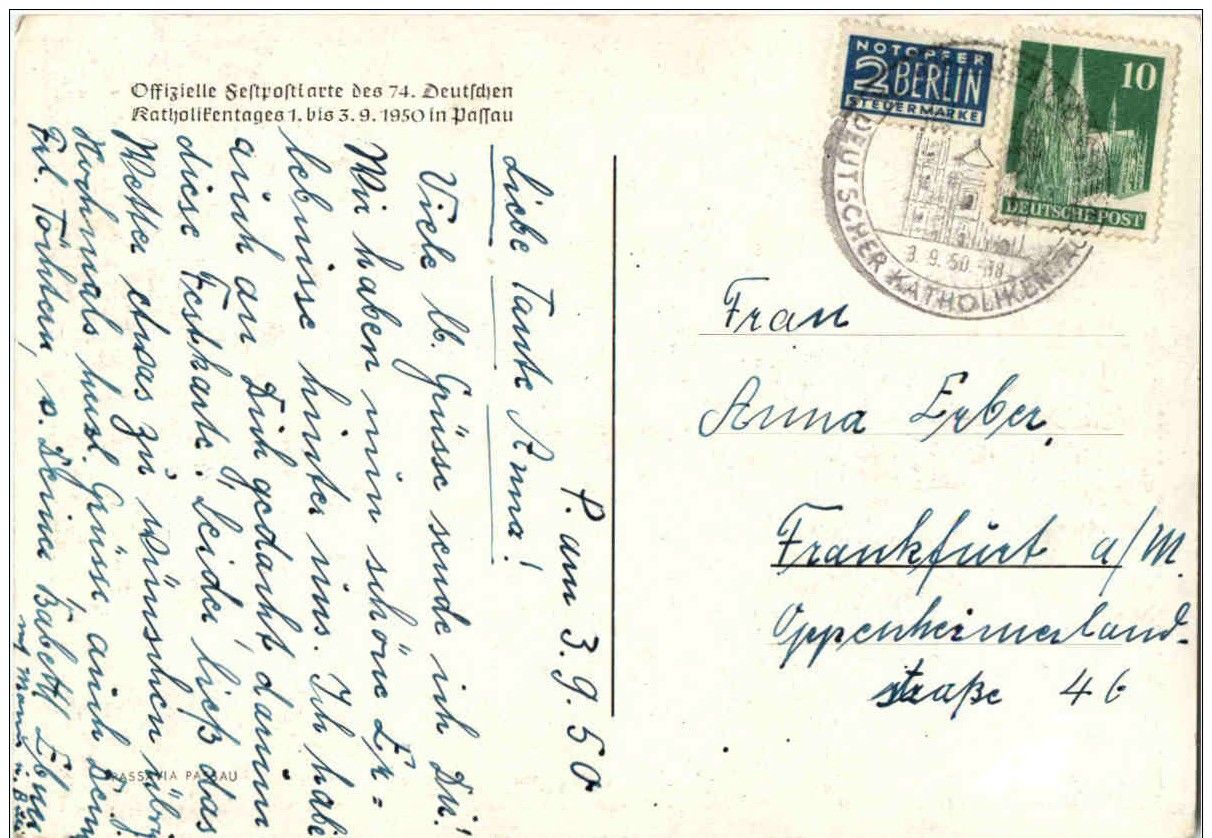 Offizielle Festpostkarte des 74. Deutschen
Katholikentages 1. bis 3. 9. 1950 in Passau
NOTOPFER
2 BERLIN
STEUERMARKE
10
DEUTSCHE POST
DEUTSCHER KATHOLIKENTAG
3. 9. 50.-18
P. am 3. 9. 50
Liebe Tante Anna!
Viele lb. Grüsse sende ich Dir.
Wir haben nun schöne Er=
lebnisse hinter uns. Ich habe
auch an Dich gedacht darum
diese Festkarte. Leider liess das
Wetter etwas zu wünschen übrig
Nochmals herzl. Grüsse auch Deiner
Frl. Tochter, v. Deiner Babett
Frau
Anna Erber,
Frankfurt a/M.
Oppenheimerland-
straße 46
PASSAVIA PASSAU